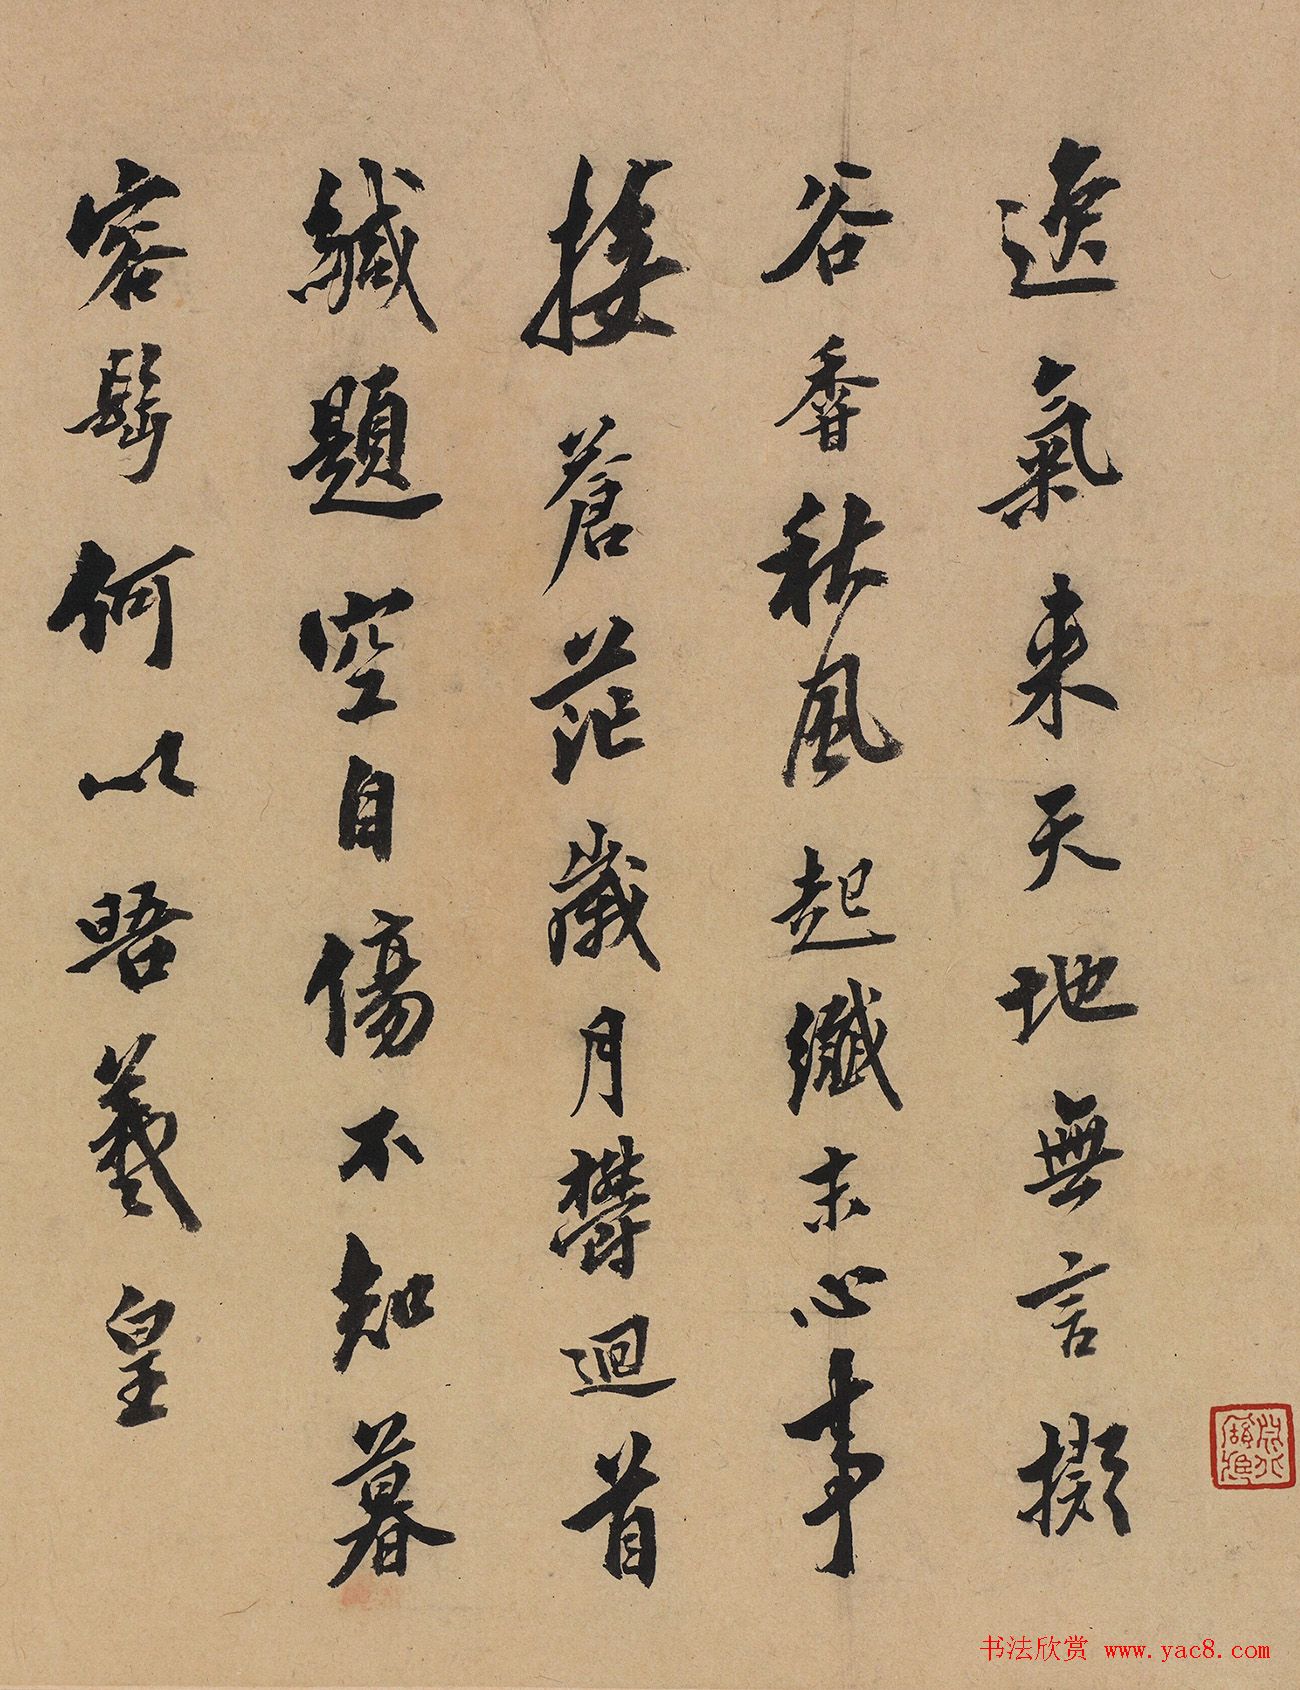 逸氣來天地無言擬
谷香秋風起纖末心事
接蒼茫歲月欝迴首
緘題空自傷不知暮
容髩何以晤羲皇
书法欣赏 www.yac8.com